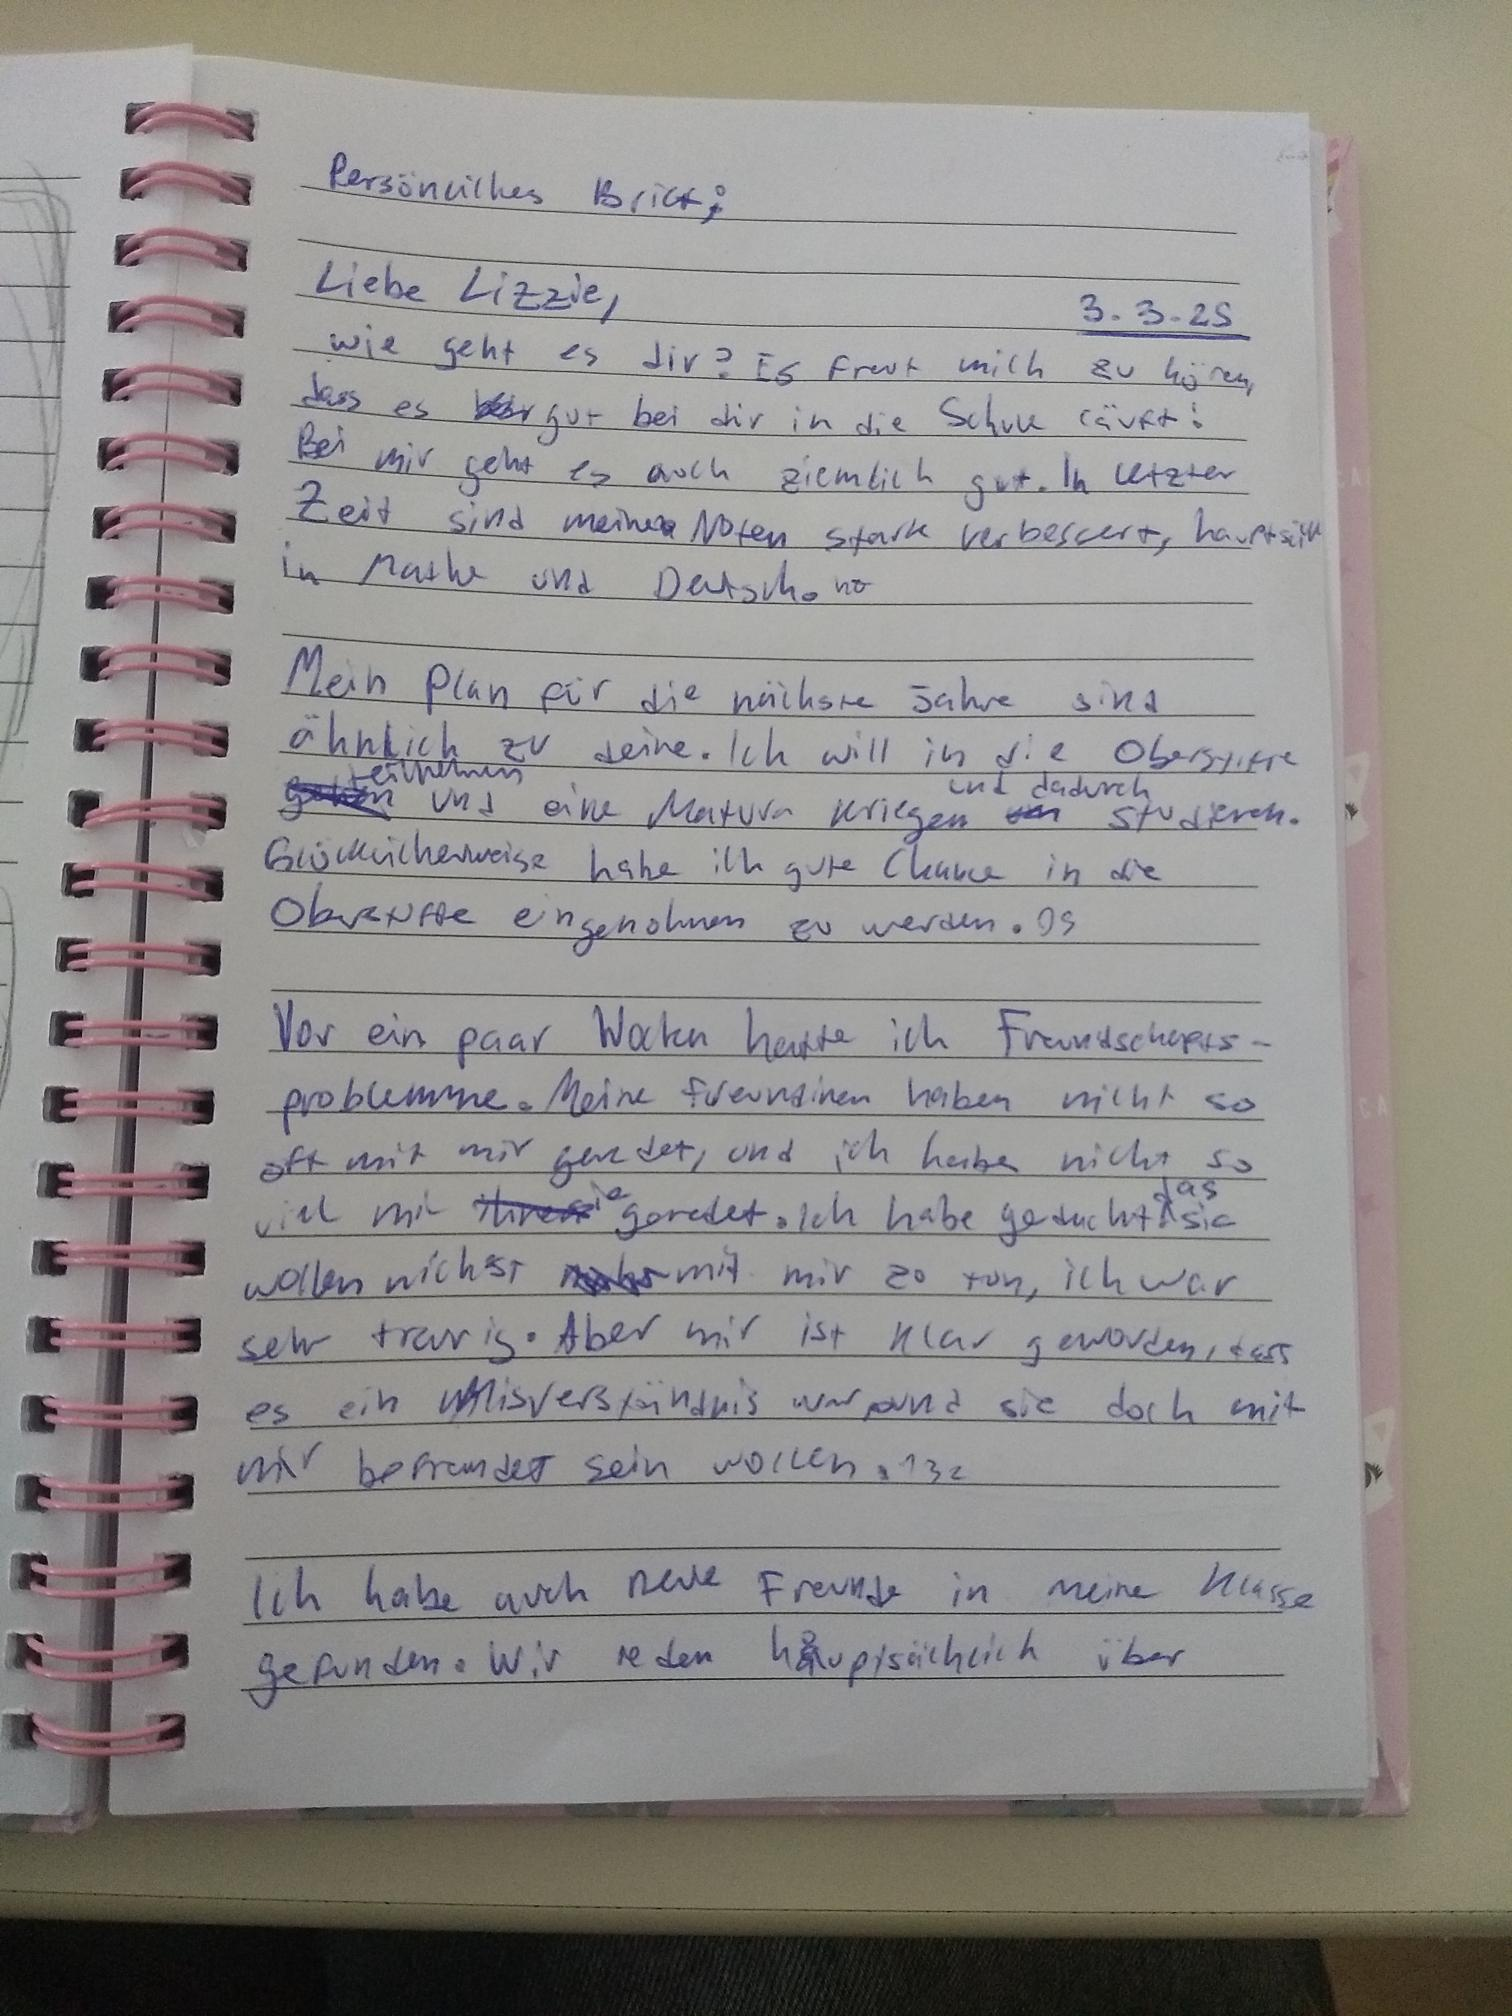 Persönliches Brief;
Liebe Lizzie,
3.3.25
wie geht es dir? Es freut mich zu hören,
dass es gut bei dir in die Schule läuft!
Bei mir geht es auch ziemlich gut. In letzter
Zeit sind meine Noten stark verbessert, hauptsäch
in Mathe und Deutsch.
Mein Plan für die nächste Jahre sind
ähnlich zu deine. Ich will in die Oberstufe
teilnehmen und eine Matura kriegen und dadurch studieren.
Glücklicherweise habe ich gute Chance in die
Oberstufe eingenohmen zu werden.
Vor ein paar Wochen hatte ich Freundschafts-
problemme. Meine Freundinen haben nicht so
oft mit mir geredet, und ich habe nicht so
viel mit sie geredet. Ich habe gedacht das sie
wollen nichst mit mir zo ton, ich war
sehr traurig. Aber mir ist klar geworden, dass
es ein Misverständnis war und sie doch mit
mir befreundet sein wollen. 132
Ich habe auch neue Freunde in meine Klasse
gefunden. Wir reden hauptsächlich über